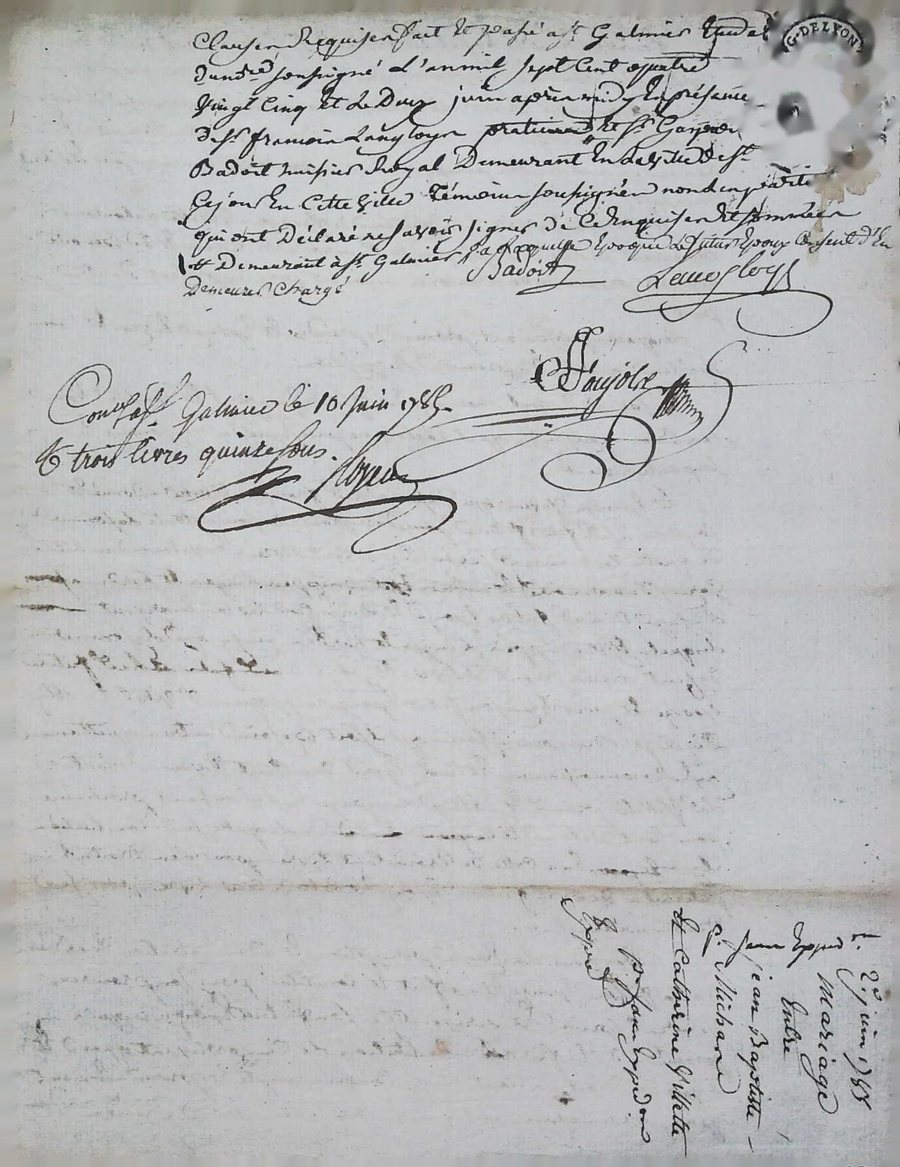 Clauses Requises fait et passé a St Galmier Etude
dudnre soussigné L'an mil sept Cent quatre
vingt Cinq et Le Deux juin après midy En présence
de Sr francois Langloys praticien et Sr Gaspard
Badoit huissier Royal Demeurant En la ville de St
 En Cette ville Témoins soussignés non les parties
qui ont Déclaré ne savoir signer de Ce Enquises et sommées
Demeurant à St Galmier a Laquelle Epoque Le futur Epoux Consent d'En
Demeurer Chargé
Badoit
Langloys
Pujolz
Con.lé à St Galmier le 10 Juin 1785.
R trois livres quinze sous.
G. DE LYON
2e juin 1785
Mariage
Entre
jean Baptiste
Michard
Et Catherine Villette
Exped